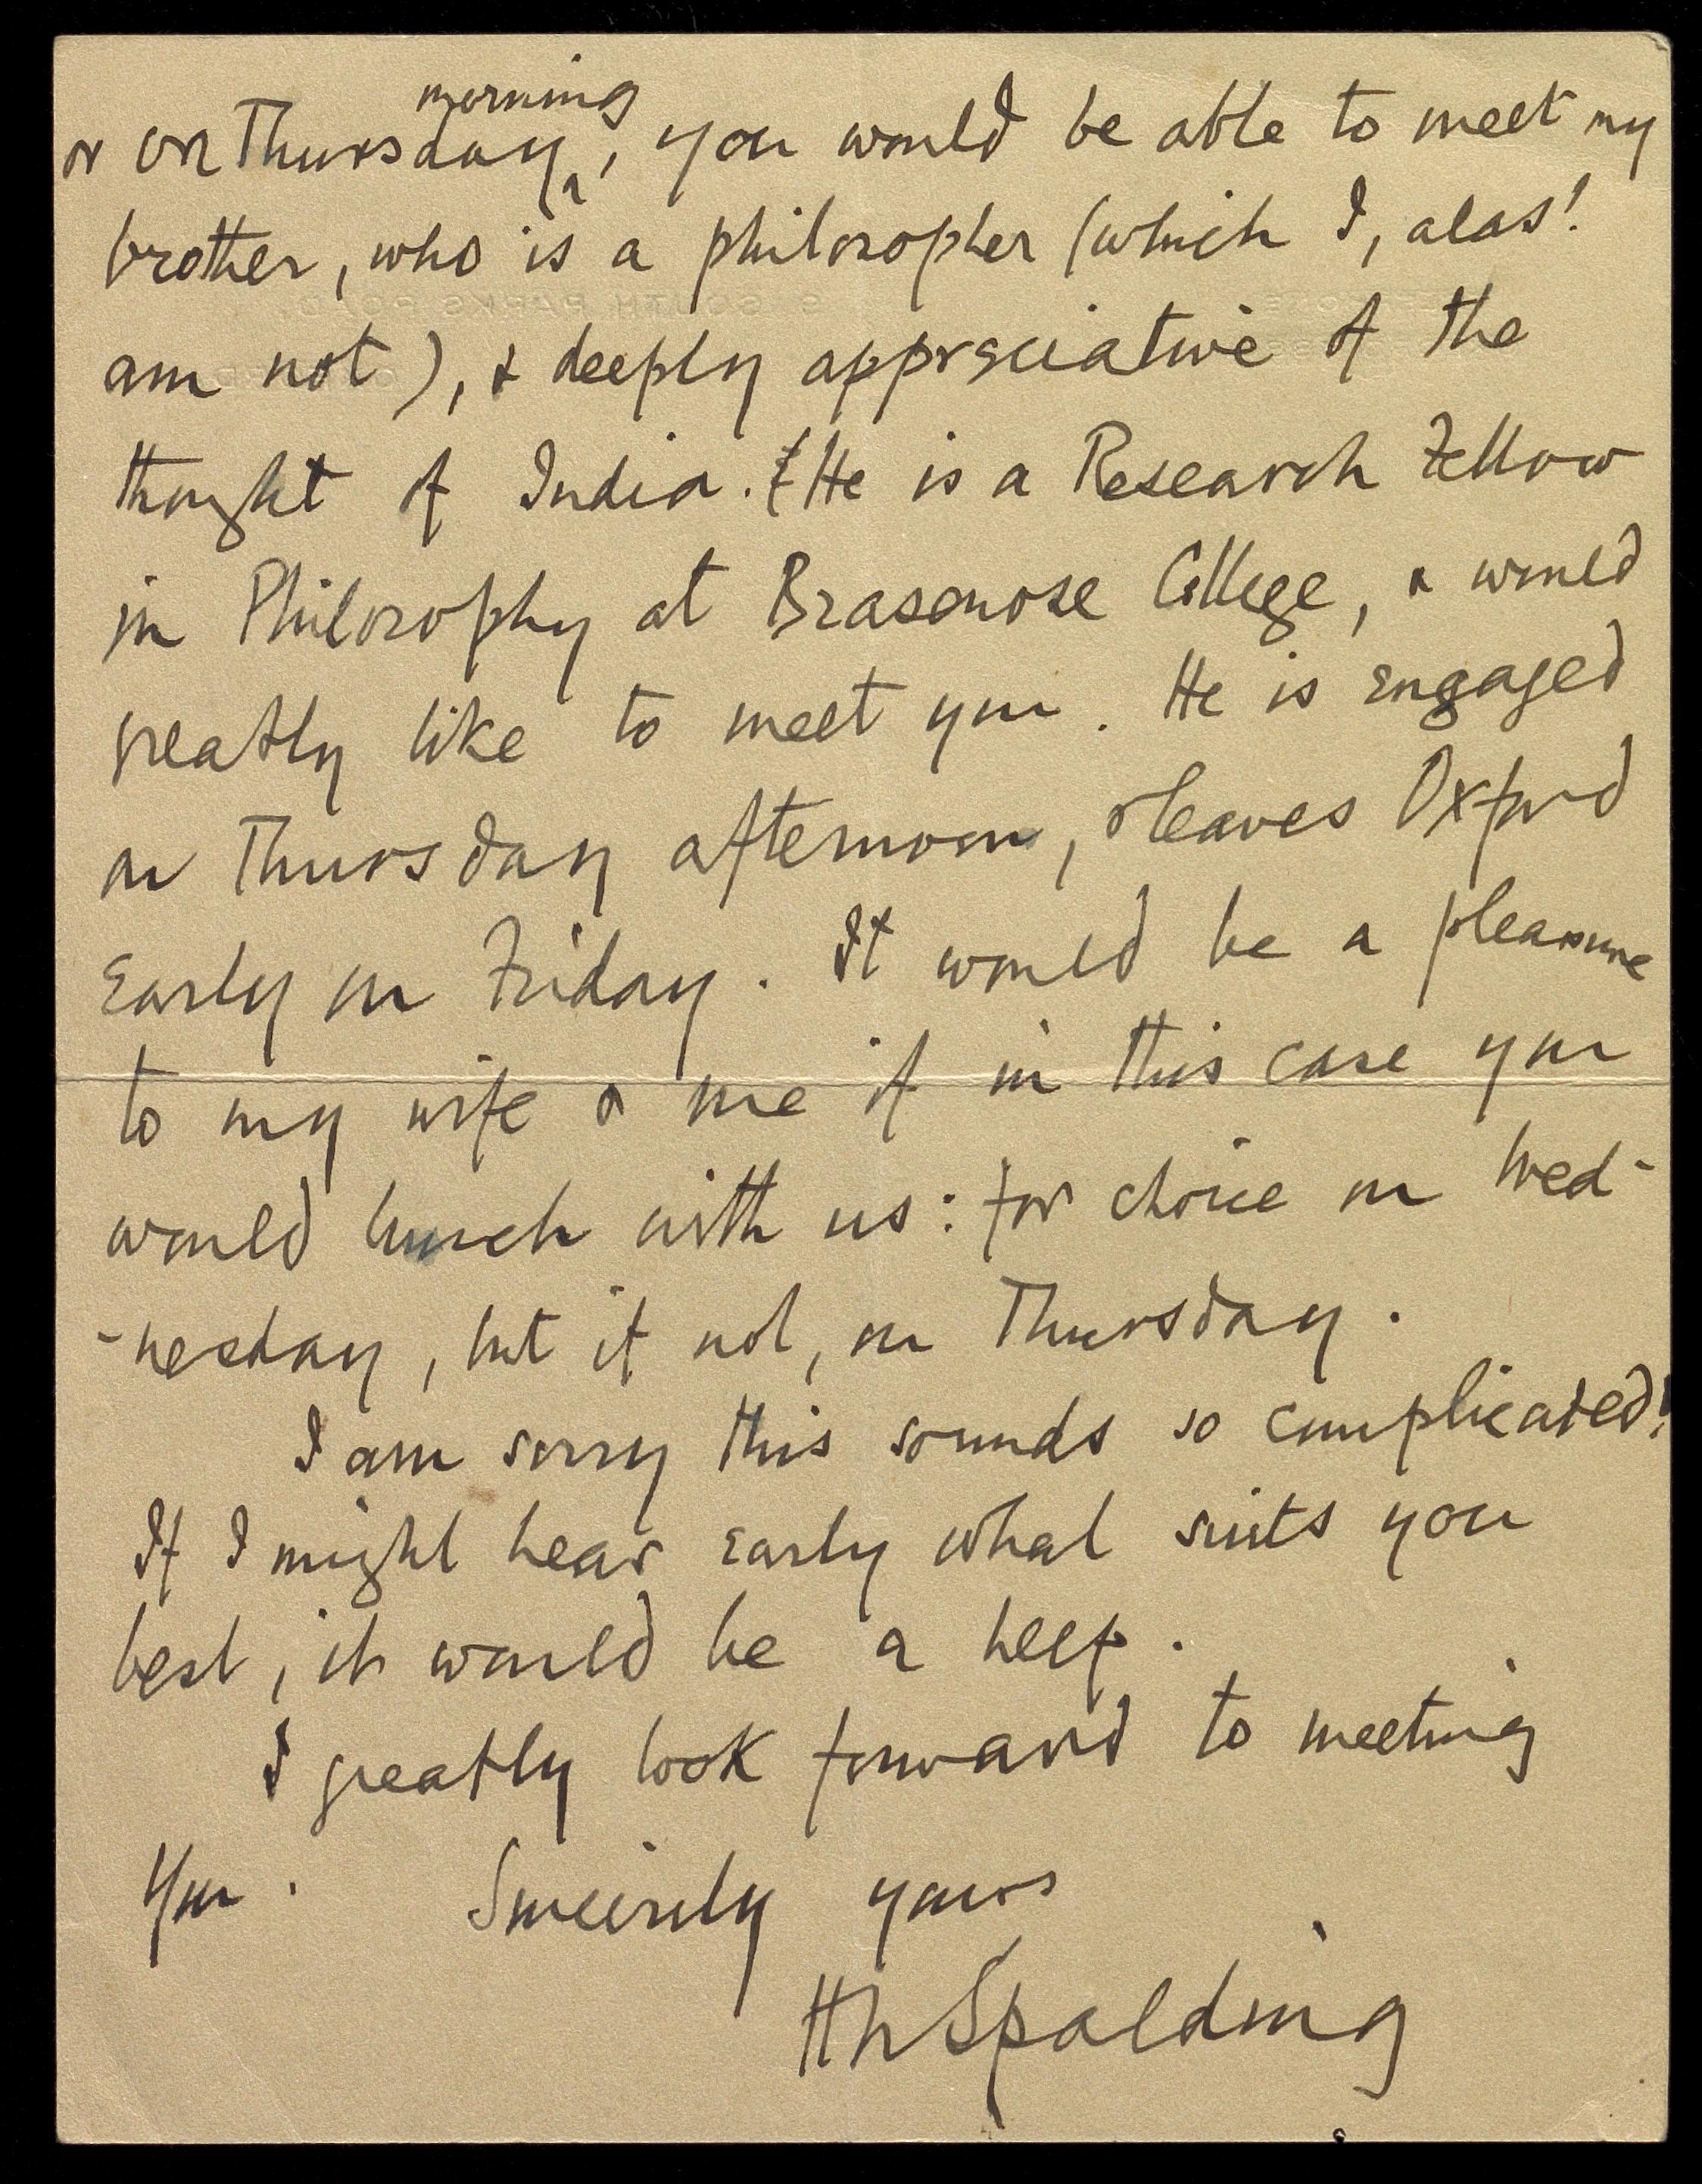 morning
or on Thursday‸, you would be able to meet my
brother, who is a philosopher (which I, alas!
am not), & deeply appreciative of the
thought of India. He is a Research Fellow
in Philosophy at Brasenose College, & would
greatly like to meet you. He is engaged
on Thursday afternoon, & leaves Oxford
early on Friday. It would be a pleasure
to my wife & me if in this case you
would lunch with us: for choice on Wed-
-nesday, but if not, on Thursday.
I am sorry this sounds so complicated!
If I might hear early what suits you
best, it would be a help.
I greatly look forward to meeting
you. Sincerely yours
HNSpalding